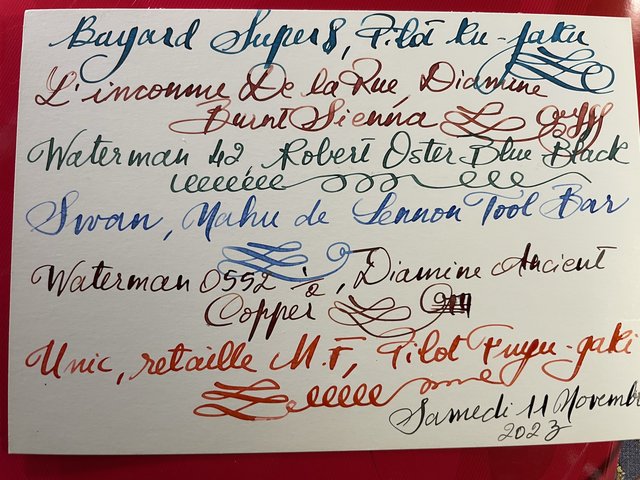 Bayard Super 8, Pilot Ku-jaku
L'inconnue De la Rue, Diamine
Burnt Sienna
Waterman 42, Robert Oster Blue Black
Swan, Nahu de Lennon Tool Bar
Waterman 0552 ½, Diamine Ancient
Copper
Unic, retaille M.F, Pilot Fuyu-gaki
Samedi 11 Novembr
2023